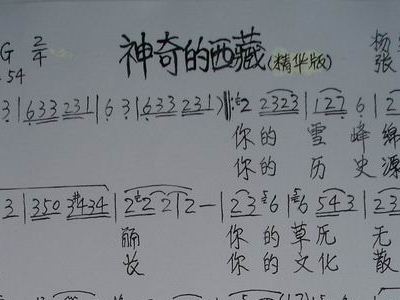 神奇的西藏(精华版) 杨
G 2/4 张
.54
3 | 633 231 | 6 3 | 633 231) ‖: 6 2 2323 | 127 6 | 2
你的 雪 峰 绵
你的 历 史 源
3 | 350 3434 | 2 2 2 | 2 — | 2 3 6 | 6 543 | 23
丽 你 的 草 原 无
长 你 的 文 化 散